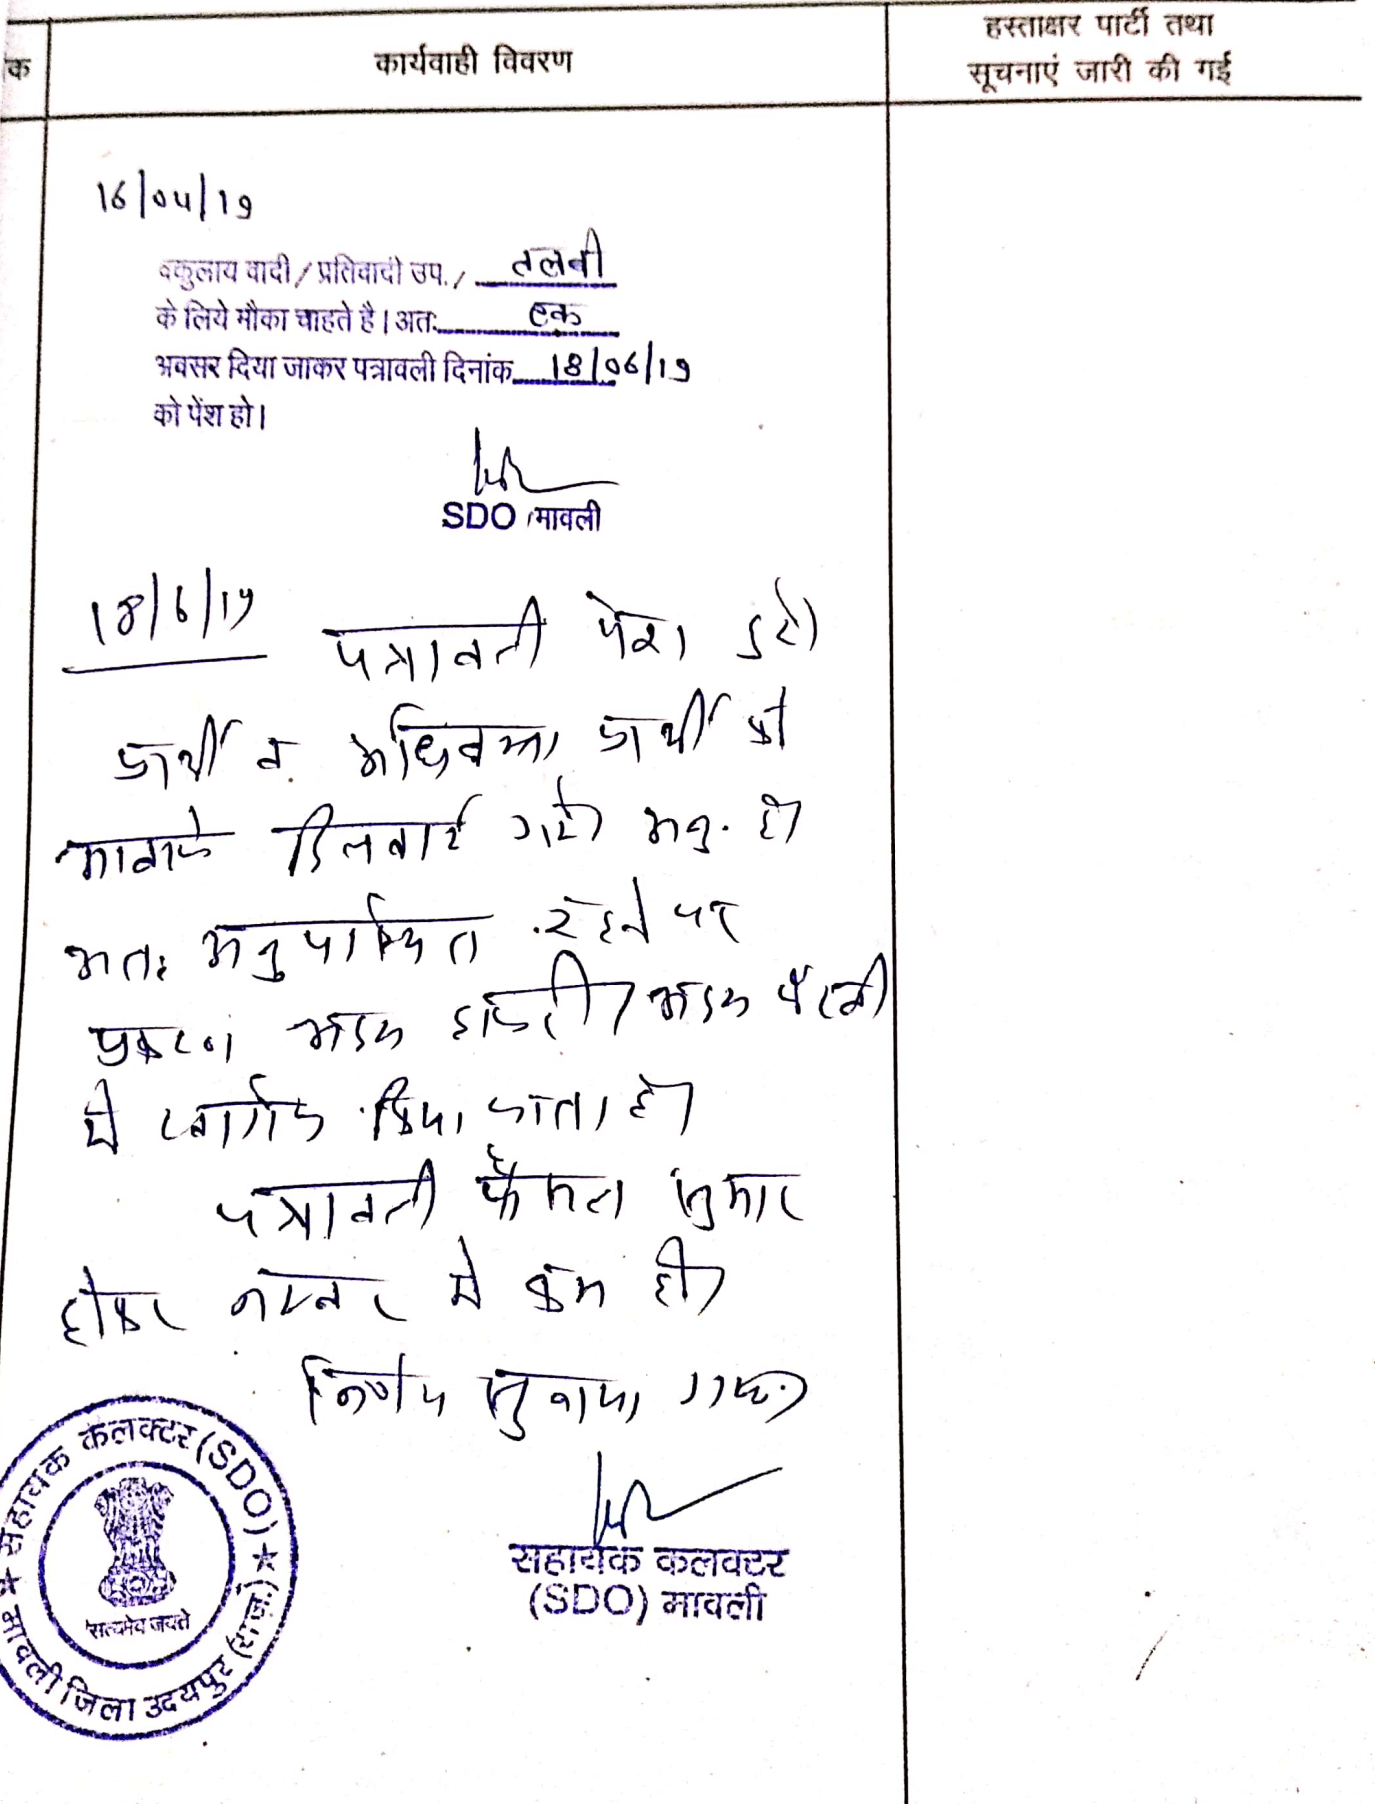 क
कार्यवाही विवरण
हस्ताक्षर पार्टी तथा
सूचनाएं जारी की गई
16/04/19
वकुलाय वादी / प्रतिवादी उप. / तलबी
के लिये मौका चाहते है। अतः एक
अवसर दिया जाकर पत्रावली दिनांक 18/06/19
को पेंश हो।
SDO मावली
18/6/19
पत्रावली पेश हुई।
प्रार्थी व अधिवक्ता प्रार्थी को
आवाजे दिलवाई गई। अनु. है।
अतः अनुपस्थित रहने पर
प्रकरण अदम हाजरी / अदम पैरवी
मे खारीज किया जाता है।
पत्रावली फैसल सुमार
होकर नम्बर से कम हो।
निर्णय सुनाया गया।
सहायक कलक्टर
(SDO) मावली
सहायक कलक्टर (SDO)
मावली जिला उदयपुर (राज.)
सत्यमेव जयते